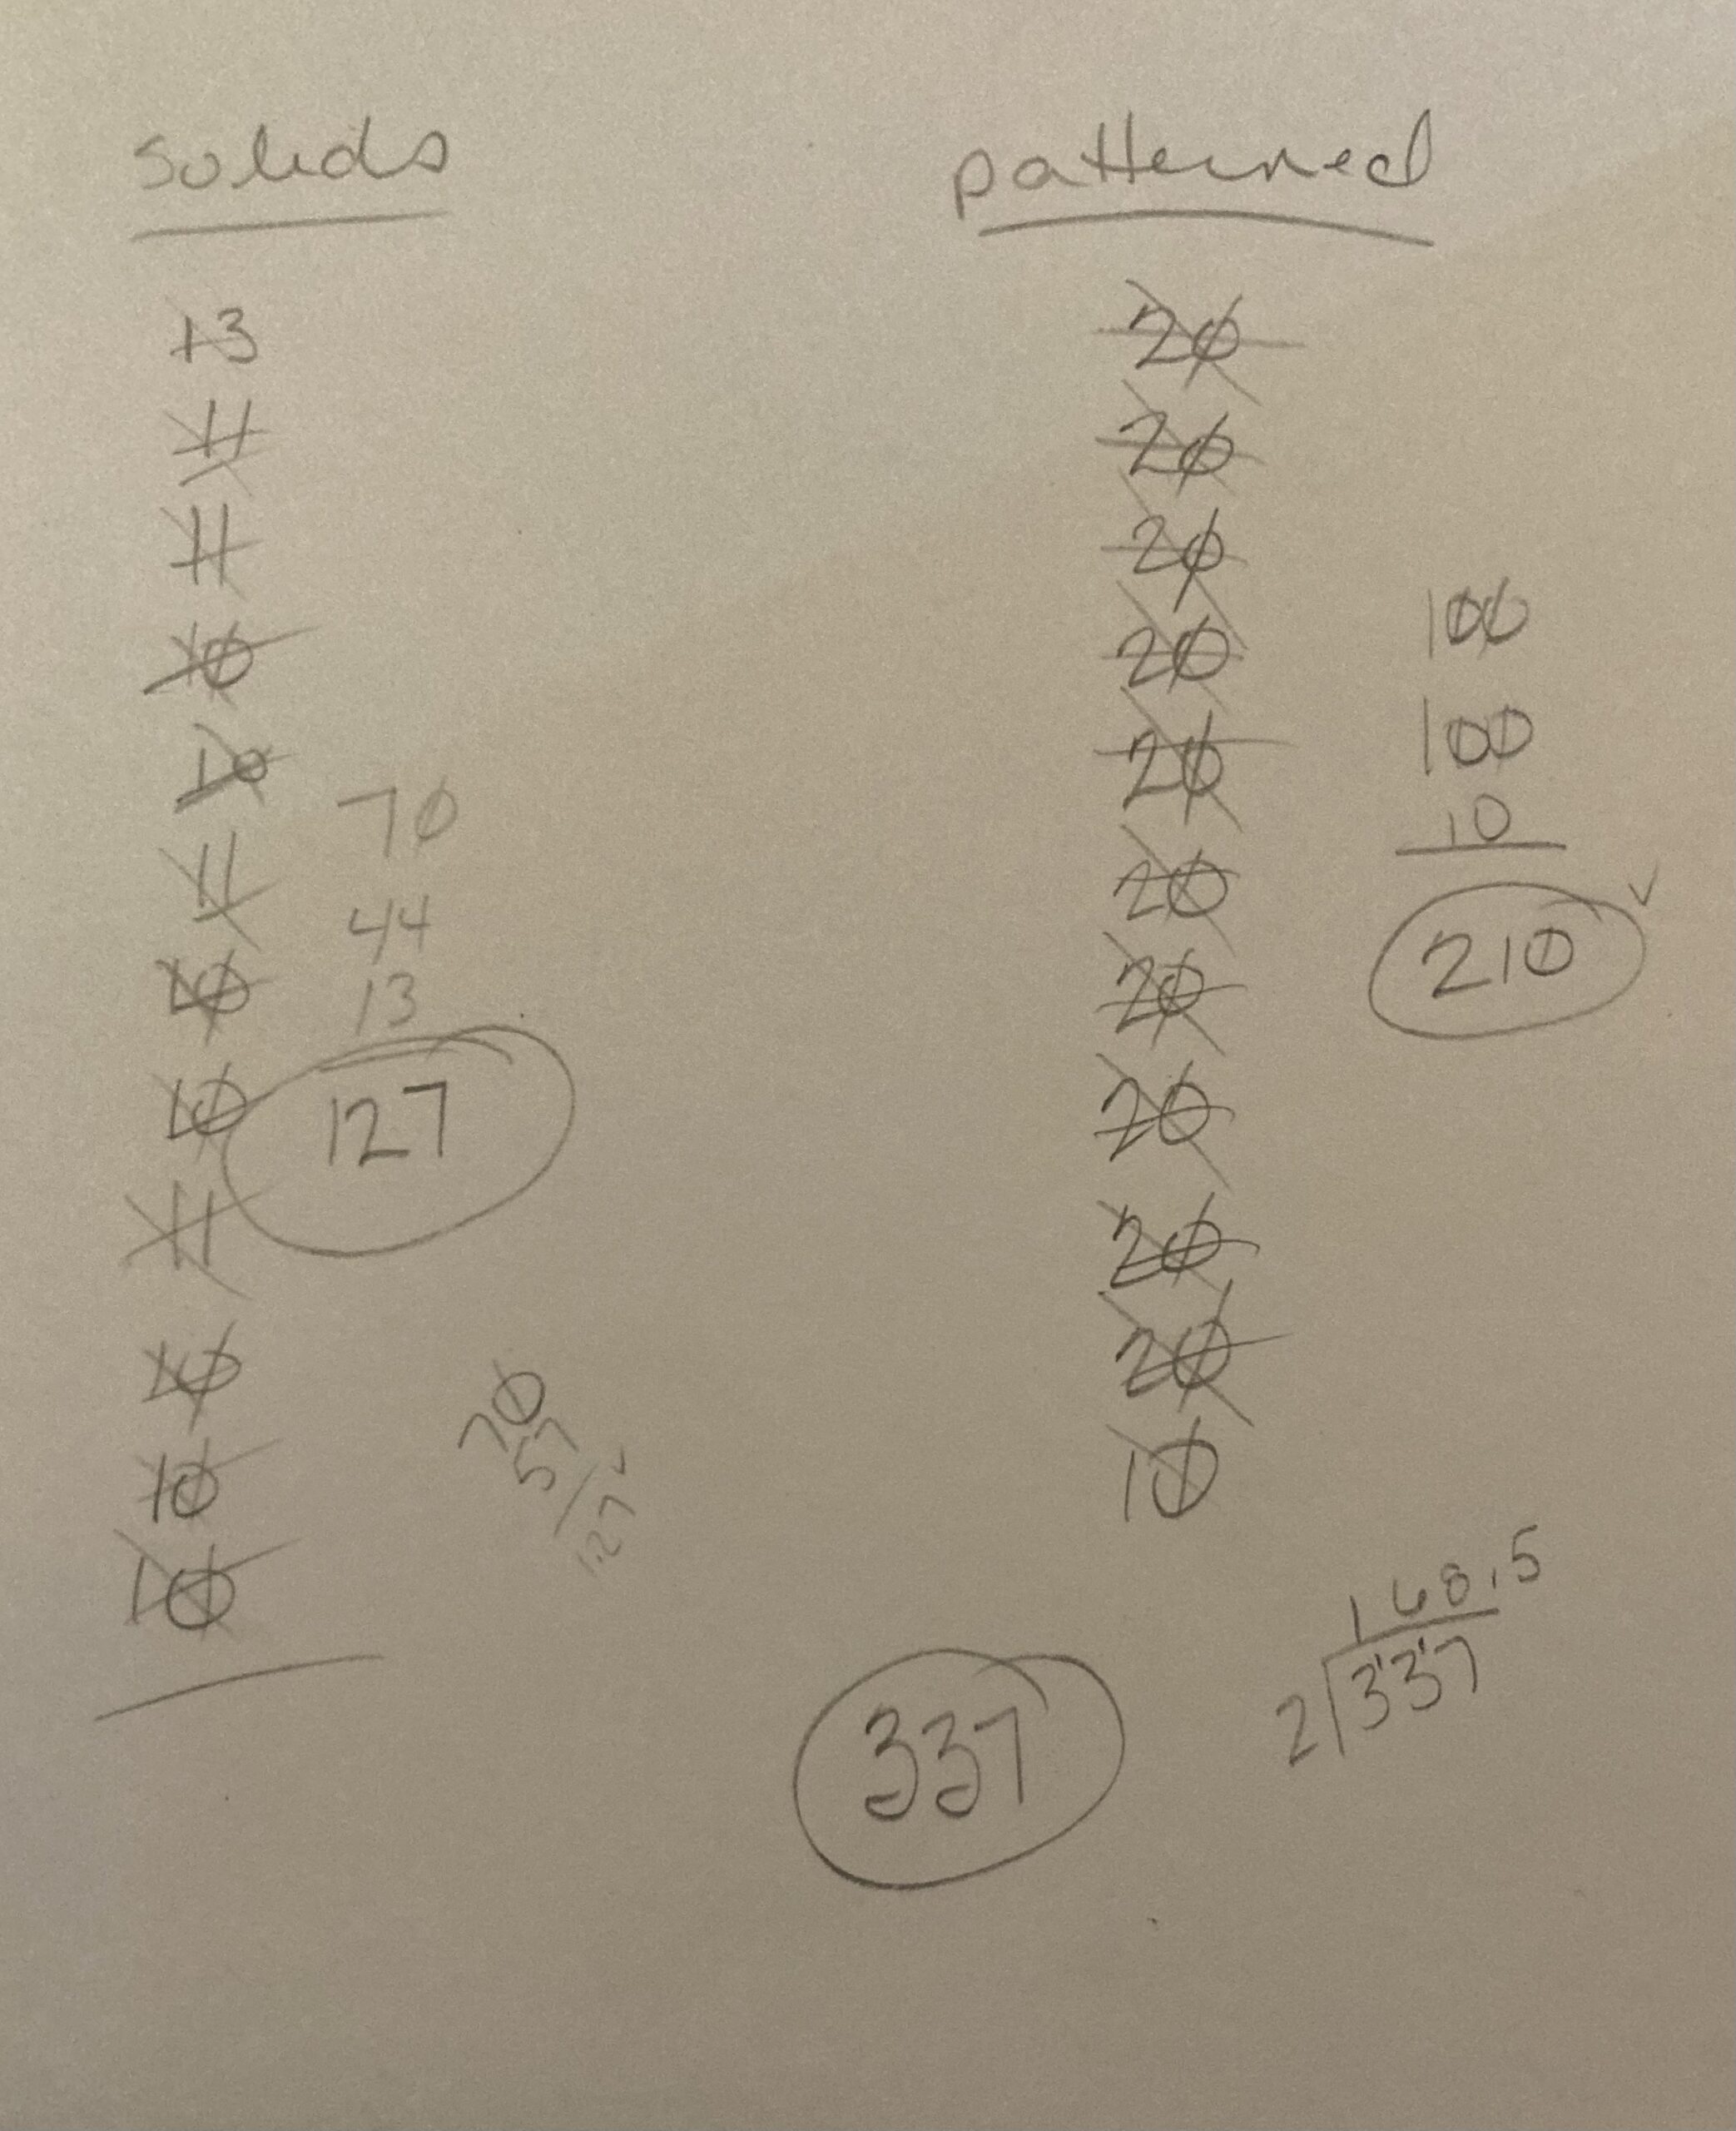 solids
13
11
11
10
10
11
10
10
11
10
10
10
70
44
13
127
70
57
127
patterned
20
20
20
20
20
20
20
20
20
20
10
100
100
10
210
337
168.5
2 337